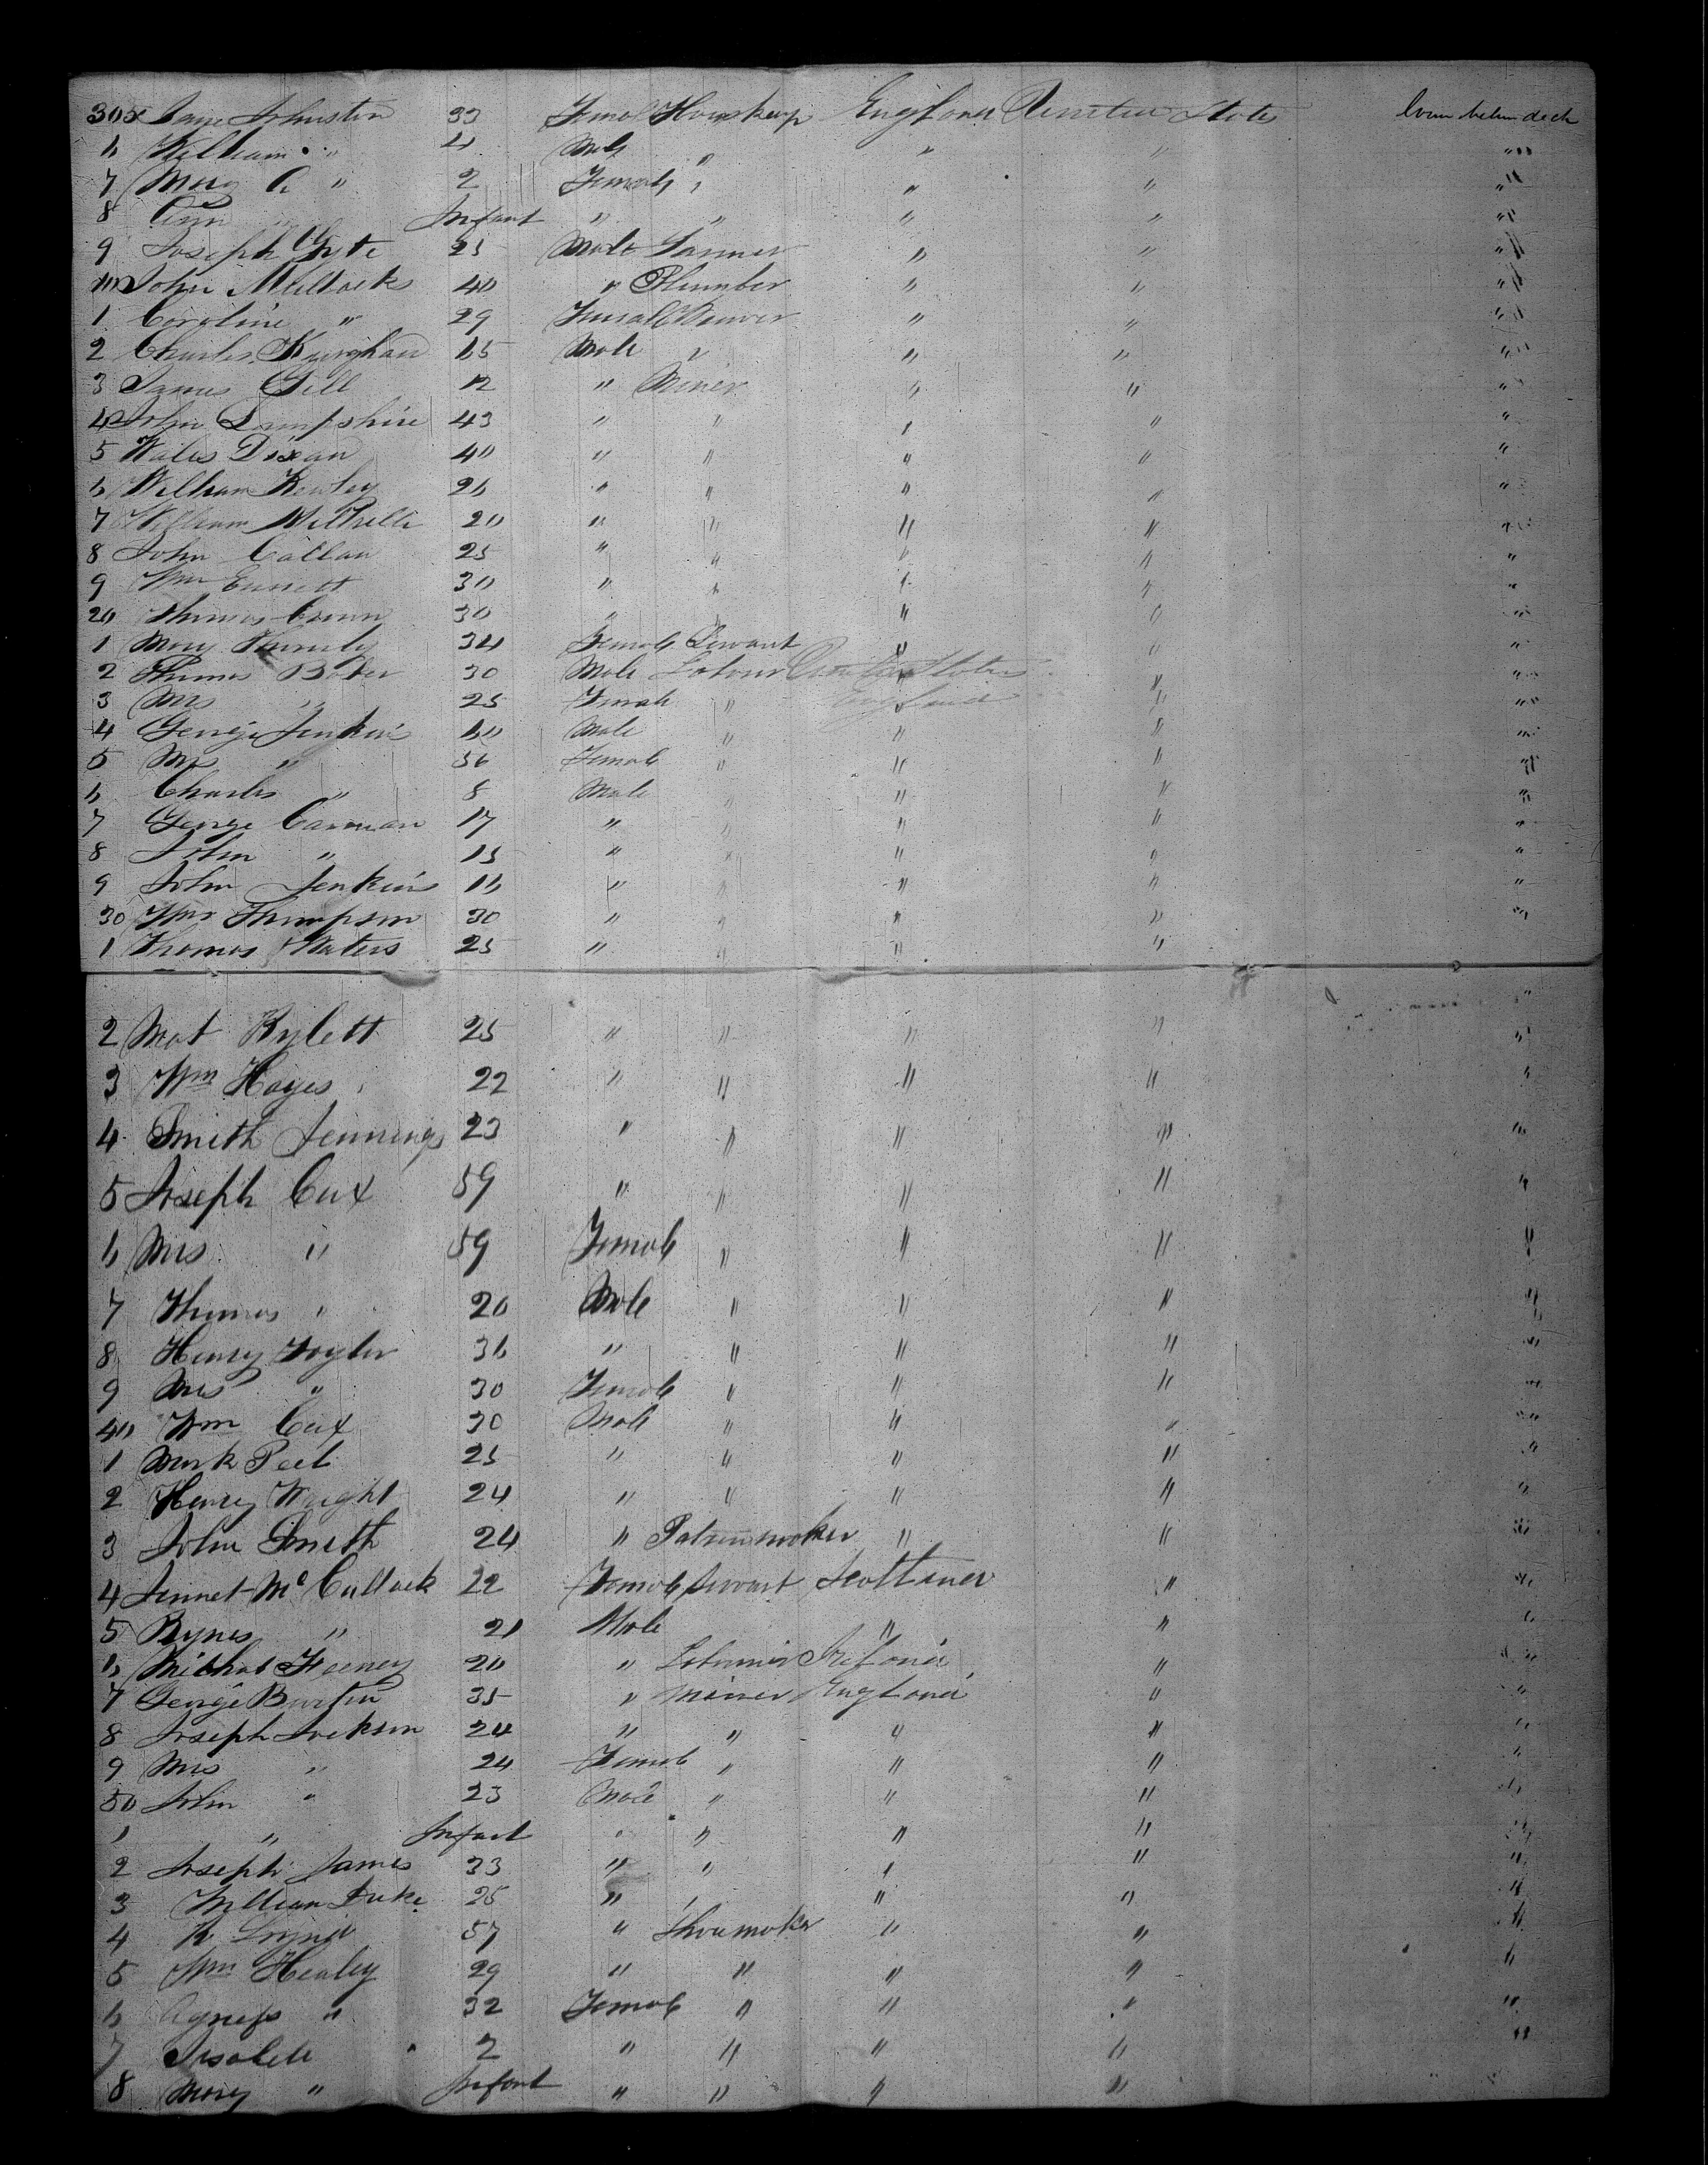 305 Jane Johnston 33 Femal Housekeep England United States Lower between deck
6 William " 4 Male " " " "
7 Mary A " 2 Female " " " "
8 Ann " Infant " " " " "
9 Joseph 25 Male Farmer " " "
10 John Mullocks 40 " Plumber " " "
1 Caroline " 29 Female " " "
2 Charles 65 Male " " " "
3 James Gill 12 " Miner " " "
4 John Lampshire 43 " " " " "
5 Wales Dixan 40 " " " " "
6 William Kewley 26 " " " " "
7 William 20 " " " " "
8 John Callan 25 " " " " "
9 Wm 30 " " " " "
20 Thomas 30 " " " " "
1 Mary 34 Female Servant " " "
2 Thomas Baker 30 Male Labour United States " "
3 Mrs " 25 Female " England " "
4 George Jenkins 60 Male " " " "
5 Mrs " 56 Female " " " "
6 Charles " 8 Male " " " "
7 George Carman 17 " " " " "
8 John " 15 " " " " "
9 John Jenkins 16 " " " " "
30 Wm Thompson 30 " " " " "
1 Thomas Waters 25 " " " " "
2 Mat Rylett 25 " " " " "
3 Wm Hayes 22 " " " " "
4 Smith Jennings 23 " " " " "
5 Joseph Cux 59 " " " " "
6 Mrs " 59 Female " " " "
7 Thomas " 20 Male " " " "
8 Henry Taylor 36 " " " " "
9 Mrs " 30 Female " " " "
40 Wm Cux 30 Male " " " "
1 Mark Peel 25 " " " " "
2 Henry Wright 24 " " " " "
3 John Smith 24 " Paternmaker " " "
4 Jennet McCullock 22 Female Servant Scotland " "
5 Bynes " 21 Male " " "
6 Michal Feeney 20 " Labourer Ireland " "
7 George Burton 35 " Miner England " "
8 Joseph Jackson 24 " " " " "
9 Mrs " 24 Female " " " "
50 John " 23 Male " " " "
1 " Infant " " " " "
2 Joseph James 33 " " " " "
3 William Duke 25 " " " " "
4 R 57 " Shoemaker " " "
5 Wm Healey 29 " " " " "
6 Agness " 32 Female " " " "
7 Isabela 2 " " " " "
8 Mary " Infant " " " "